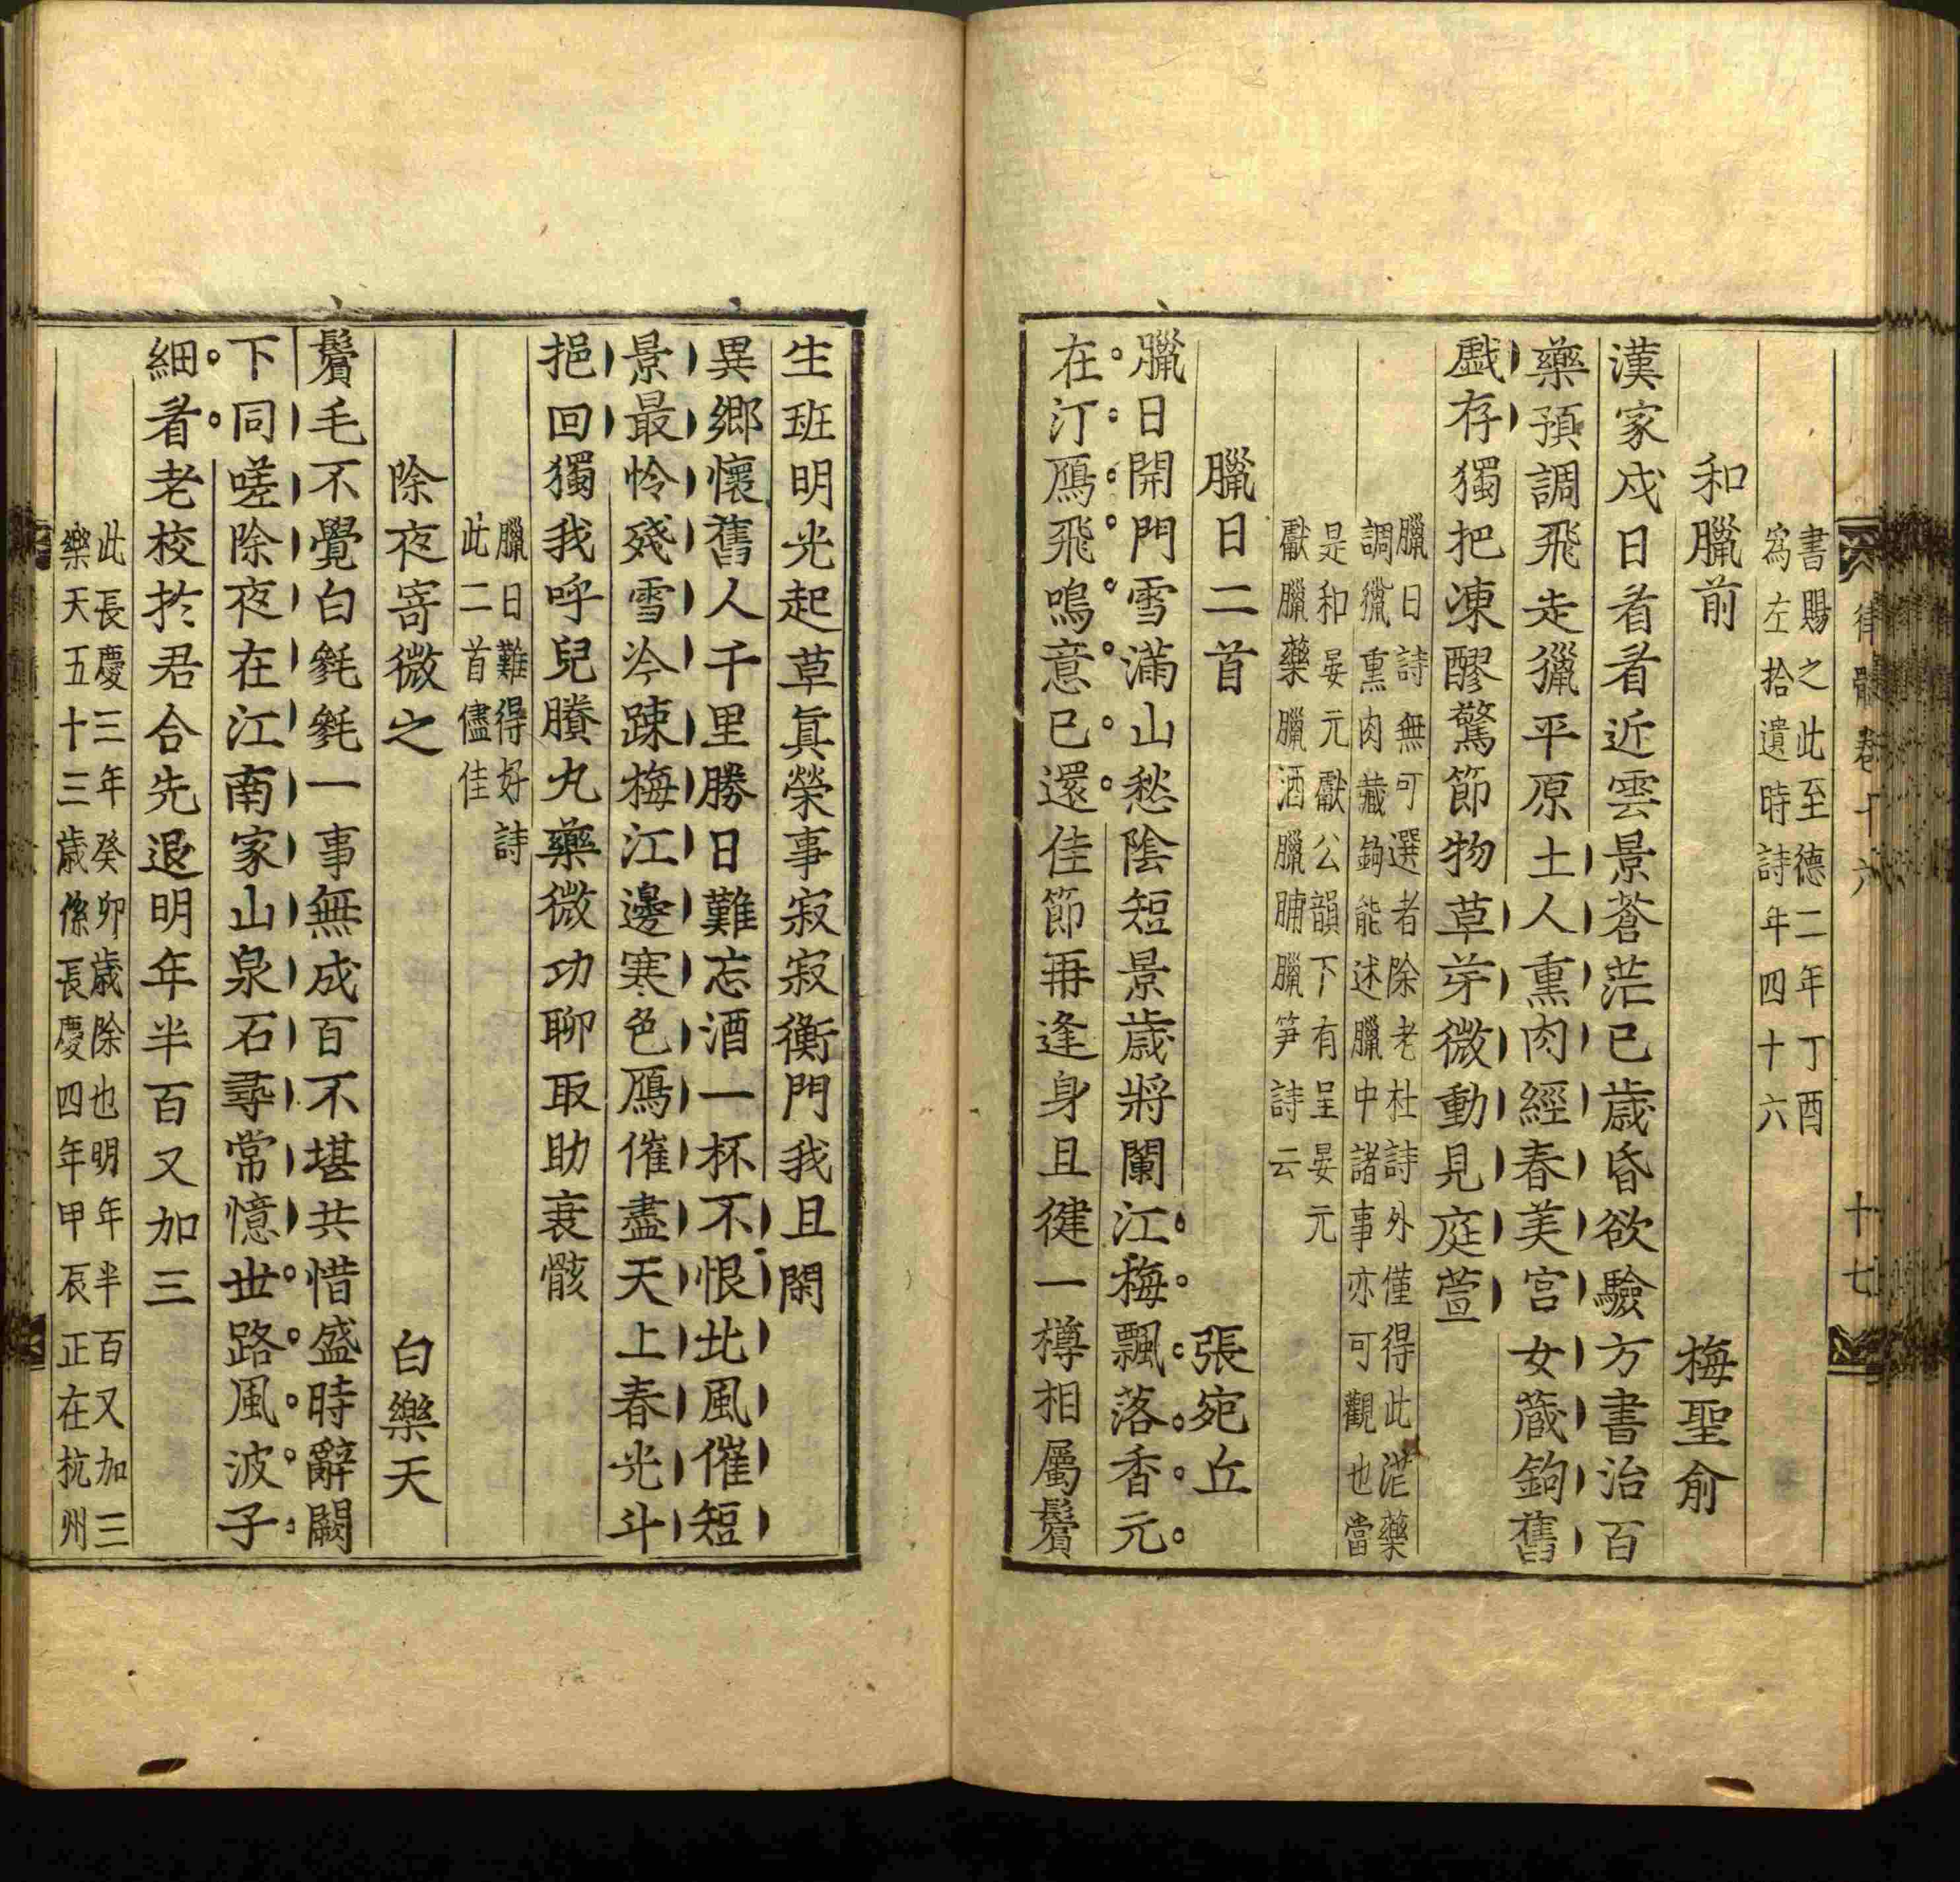 律髓卷十六 十七
書賜之此至德二年丁酉
爲左拾遺時詩年四十六
和臘前 梅聖俞
漢家戍日看看近雲景蒼茫已歲昏欲驗方書治百
藥預調飛走獵平原土人熏肉經春美宮女藏鉤舊
戲存獨把凍醪驚節物草芽微動見庭萱
臘日詩無可選者除老杜詩外僅得此湴藥
調獵熏肉藏鉤能述臘中諸事亦可觀也當
是和晏元獻公韻下有呈晏元
獻臘藥臘酒臘脯臘笋詩云
臘日二首 張宛丘
臘日開門雪滿山愁陰短景歲將闌江梅飄落香元
在汀鴈飛鳴意已還佳節再逢身且健一樽相屬鬢
生班明光起草眞榮事寂寂衡門我且閑
異鄉懷舊人千里勝日難忘酒一杯不恨北風催短
景最怜殘雪冷踈梅江邊寒色鴈催盡天上春光斗
挹回獨我呼兒賸丸藥微功聊取助衰骸
臘日難得好詩
此二首儘佳
除夜寄微之 白樂天
鬢毛不覺白毿毿一事無成百不堪共惜盛時辭闕
下同嗟除夜在江南家山泉石尋常憶世路風波子
細看老校於君合先退明年半百又加三
此長慶三年癸卯歲除也明年半百又加三
樂天五十三歲係長慶四年甲辰正在杭州